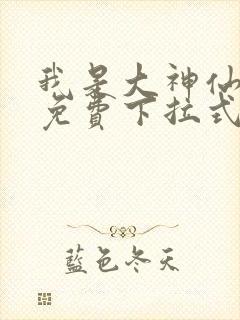 我是大神仙
免費下拉式
藍色冬天